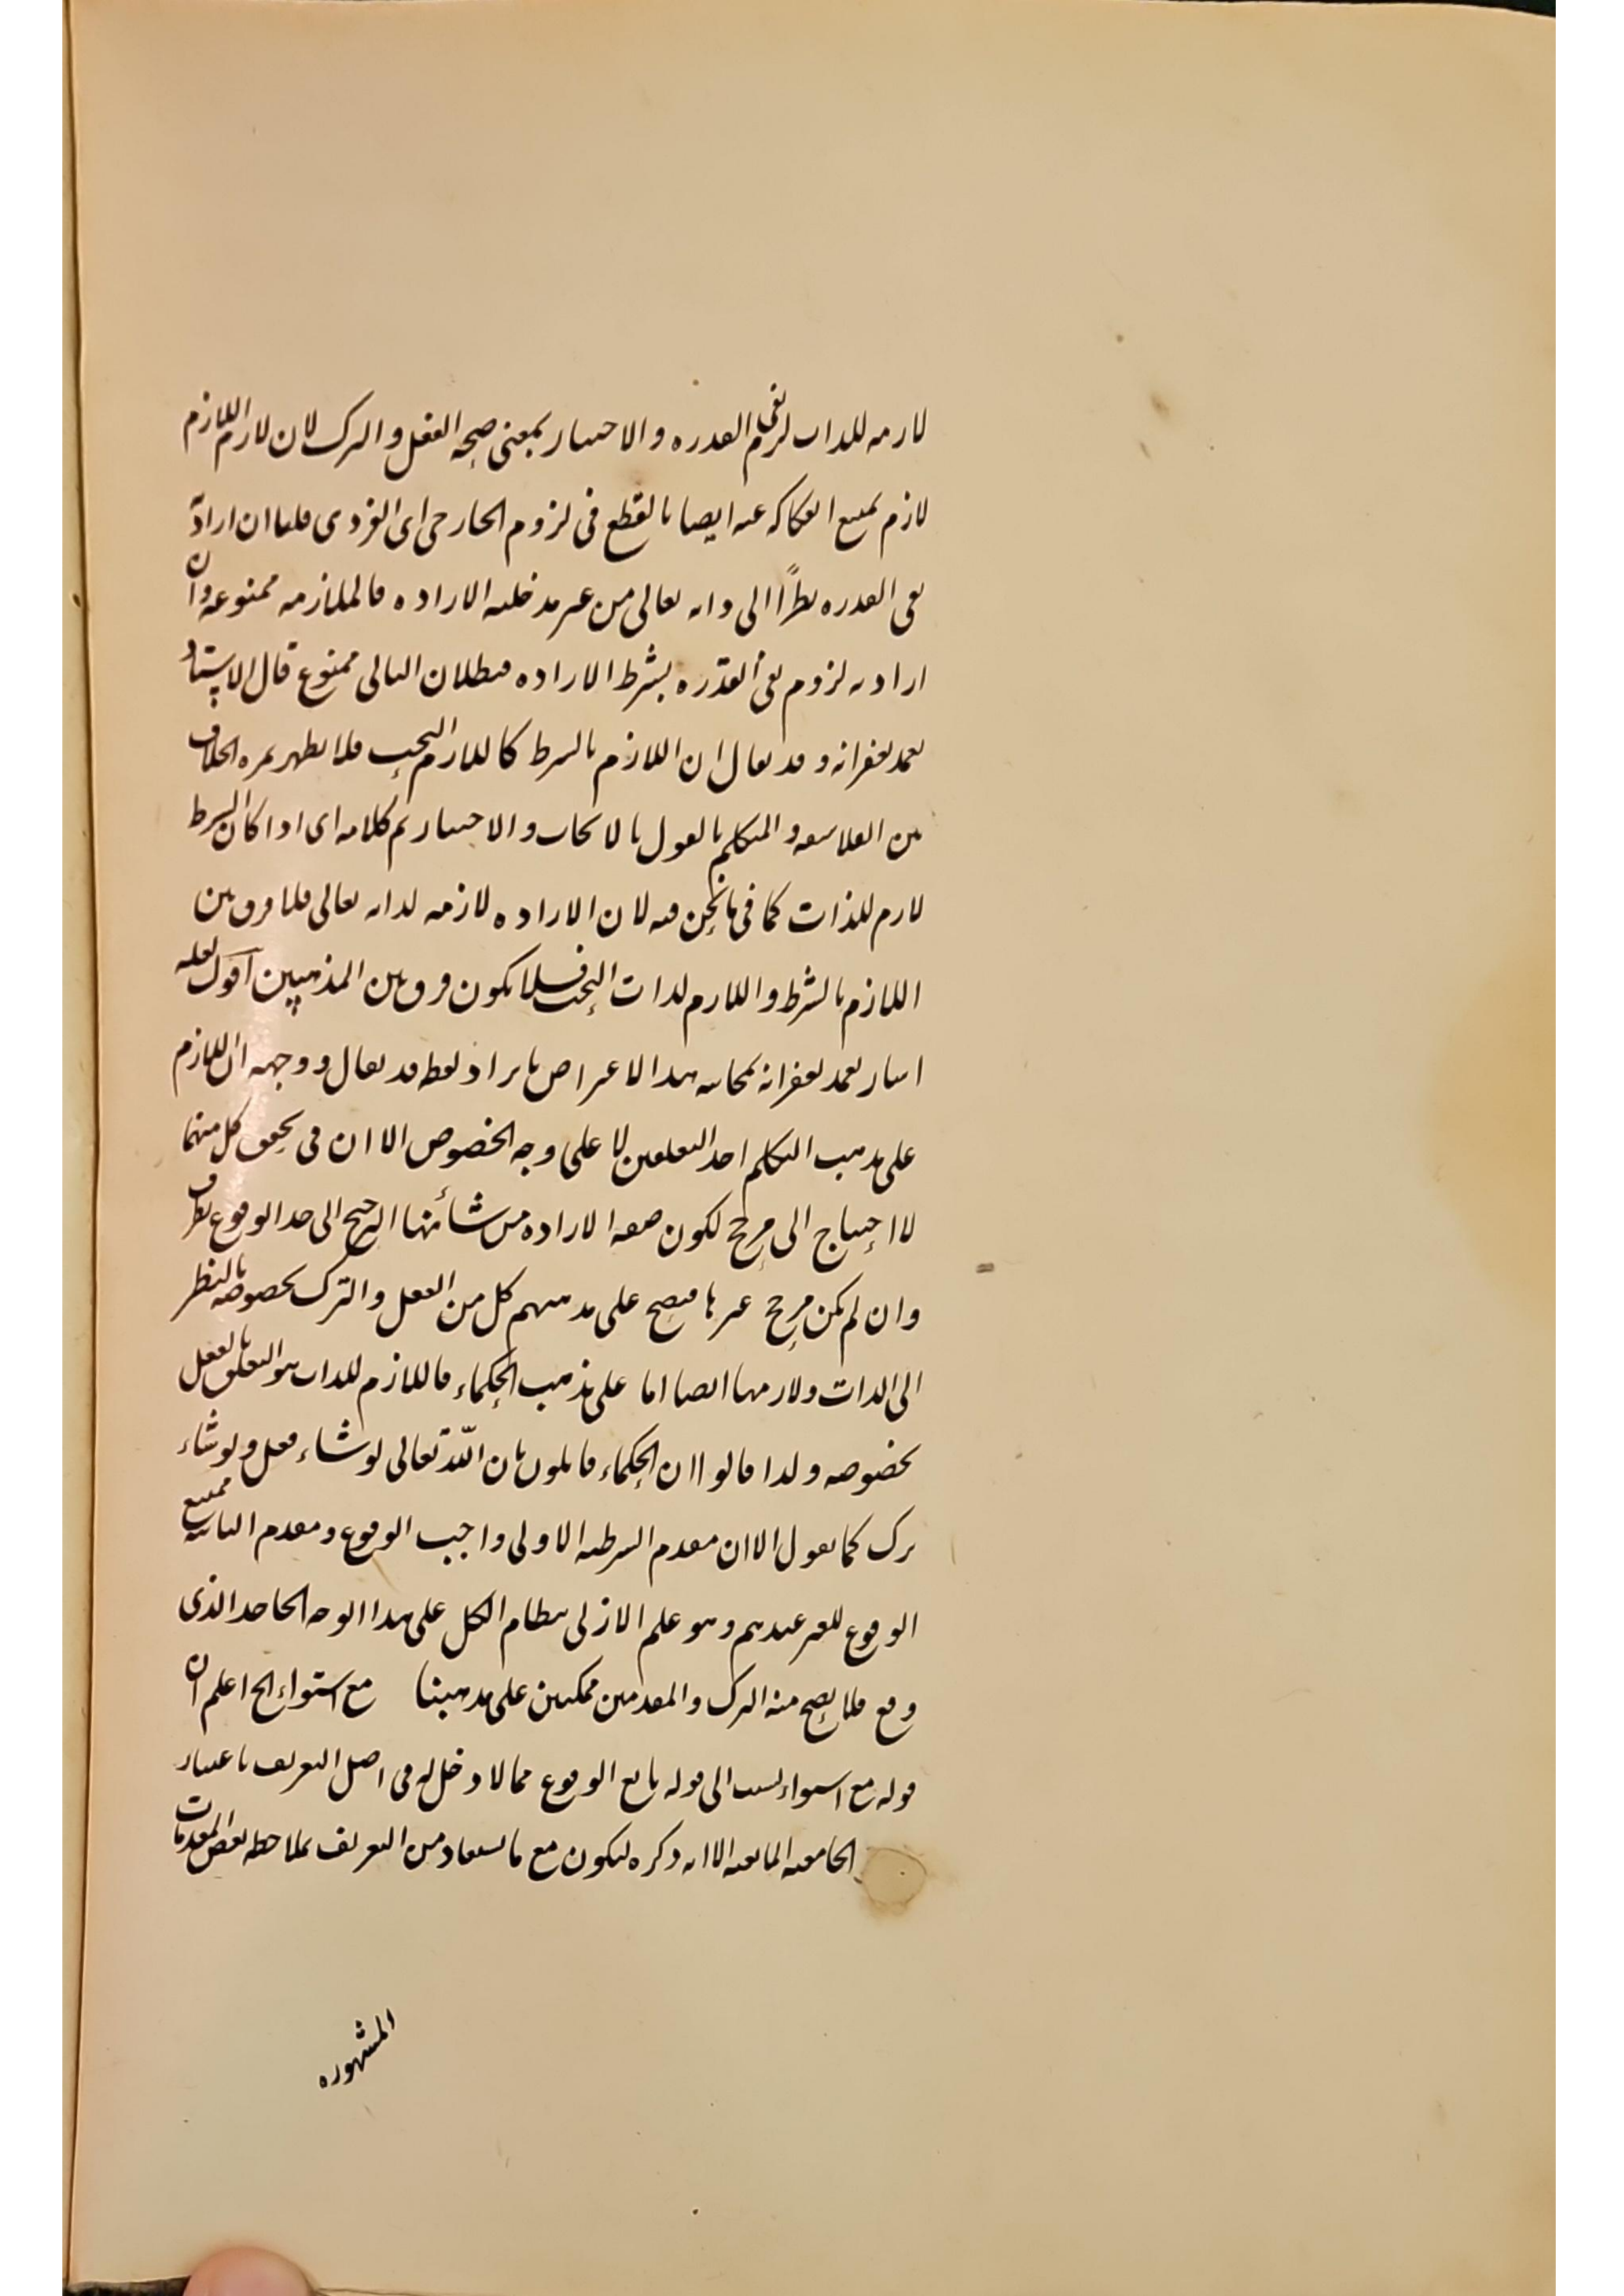 لازمه للذات لزم نفى القدره والاختيار بمعنى صحه الفعل والترك لان لازم اللازم
لازم يمتنع انفكاكه عنه ايضا بالقطع فى لزوم الخارجى اى الفردى قلنا ان اراد به
نفى القدره نظرًا الى ذاته تعالى من غير مدخليه الاراده فالملازمه ممنوعه وان
اراد به لزوم نفى القدره بشرط الاراده فبطلان التالى ممنوع قال الاستاد
تغمد بغفرانه وقد يقال ان اللازم بالشرط كاللازم البحت فلا يظهر ثمره الخلاف
بين الفلاسفه والمتكلم بالقول بالايجاب والاختيار تم كلامه اى اذا كان الشرط
لازم للذات كما فى ما نحن فيه لان الاراده لازمه لذاته تعالى فلا فرق بين
اللازم بالشرط واللازم لذات البحت فلا يكون فرق بين المذهبين اقول لعله
اشار تغمد بغفرانه بمحاسبه هذا الاعتراض بايراد لفظ قد يقال ووجهه ان اللازم
على مذهب المتكلم احد التعلقين لا على وجه الخصوص الا ان فى تحقق كل منهما
لا احتياج الى مرجح لكون صفه الاراده من شأنها الترجيح الى حد الوقوع بطرف
وان لم يكن مرجح غيرها فيصح على مذهبهم كل من الفعل والترك بخصوصه بالنظر
الى الذات ولازمها ايضا اما على مذهب الحكماء فاللازم للذات هو التعلق بالفعل
بخصوصه ولذا قالوا ان الحكماء قايلون بان الله تعالى لو شاء فعل ولو شاء
ترك كما نقول الا ان مقدم الشرطيه الاولى واجب الوقوع ومقدم الثانيه ممتنع
الوقوع للغير عندهم وهو علم الازلى بنظام الكل على هذا الوجه الخاص الذى
وقع فلا يصح منه الترك والمقدمين ممكنين على مذهبنا مع استواء الخ اعلم ان
قوله مع استواء نسبت الى قوله تابع الوقوع مما لا دخل له فى اصل التعريف باعتبار
الجامعيه المانعيه الا انه ذكره ليكون مع ما يستفاد من التعريف بملاحظه بعض المقدمات
المشهوره